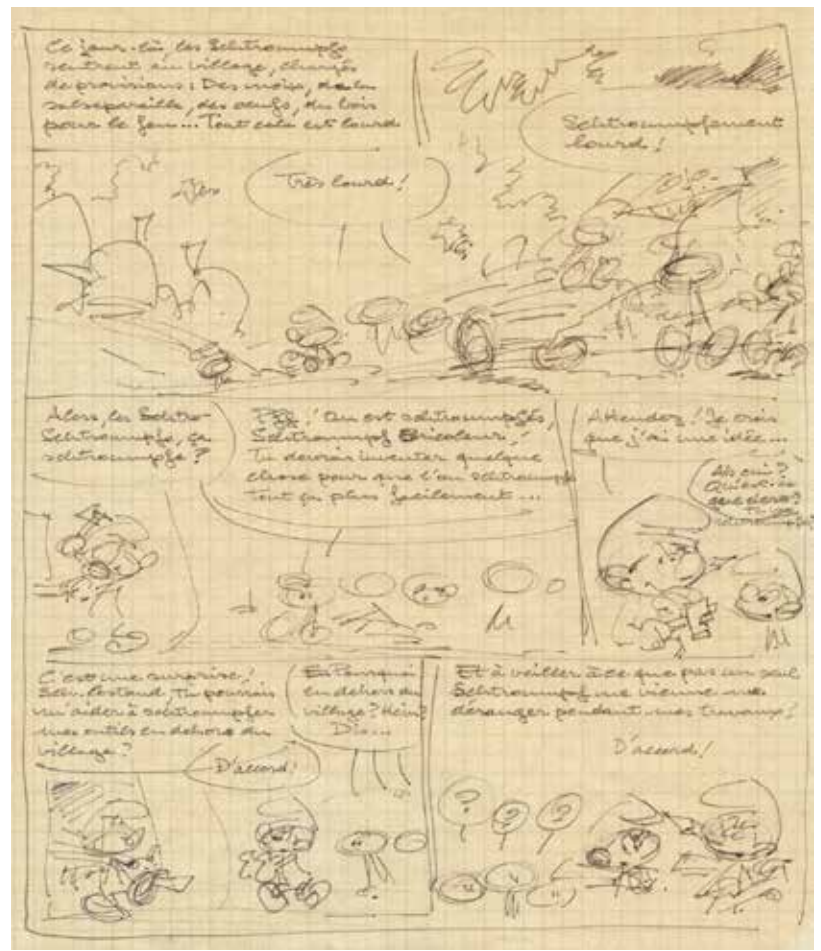 Ce jour-là, les Schtroumpfs
rentrent au village, chargés
de provisions : Des noix, de la
salsepareille, des œufs, du bois
pour le feu... Tout cela est lourd
Très lourd !
Schtroumpfement
lourd !
Alors, les Schtro-
Schtroumpfs, ça
schtroumpfe ?
! On est schtroumpfés,
Schtroumpf Bricoleur !
Tu devrais inventer quelque
chose pour que l'on schtroumpfe
tout ça plus facilement...
Attendez ! Je crois
que j'ai une idée...
Ah oui ?
Qu'est-ce
que
C'est une surprise !
Tu pourrais
m'aider à schtroumpfer
mes outils en dehors du
village ?
D'accord !
Pourquoi
en dehors du
village ? Hein ?
Dis...
Et à veiller à ce que pas un seul
Schtroumpf ne vienne me
déranger pendant mes travaux !
D'accord !